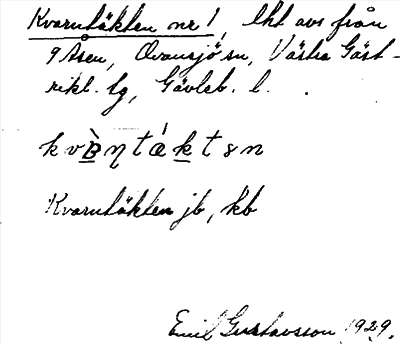 Kvarntäkten nr 1, lht avs från
9 Åsen, Ovansjö sn, Västra Gäst-
rikl. tg, Gävleb. l.
Kvarntäkten jb, kb
Emil Gustavsson 1929.